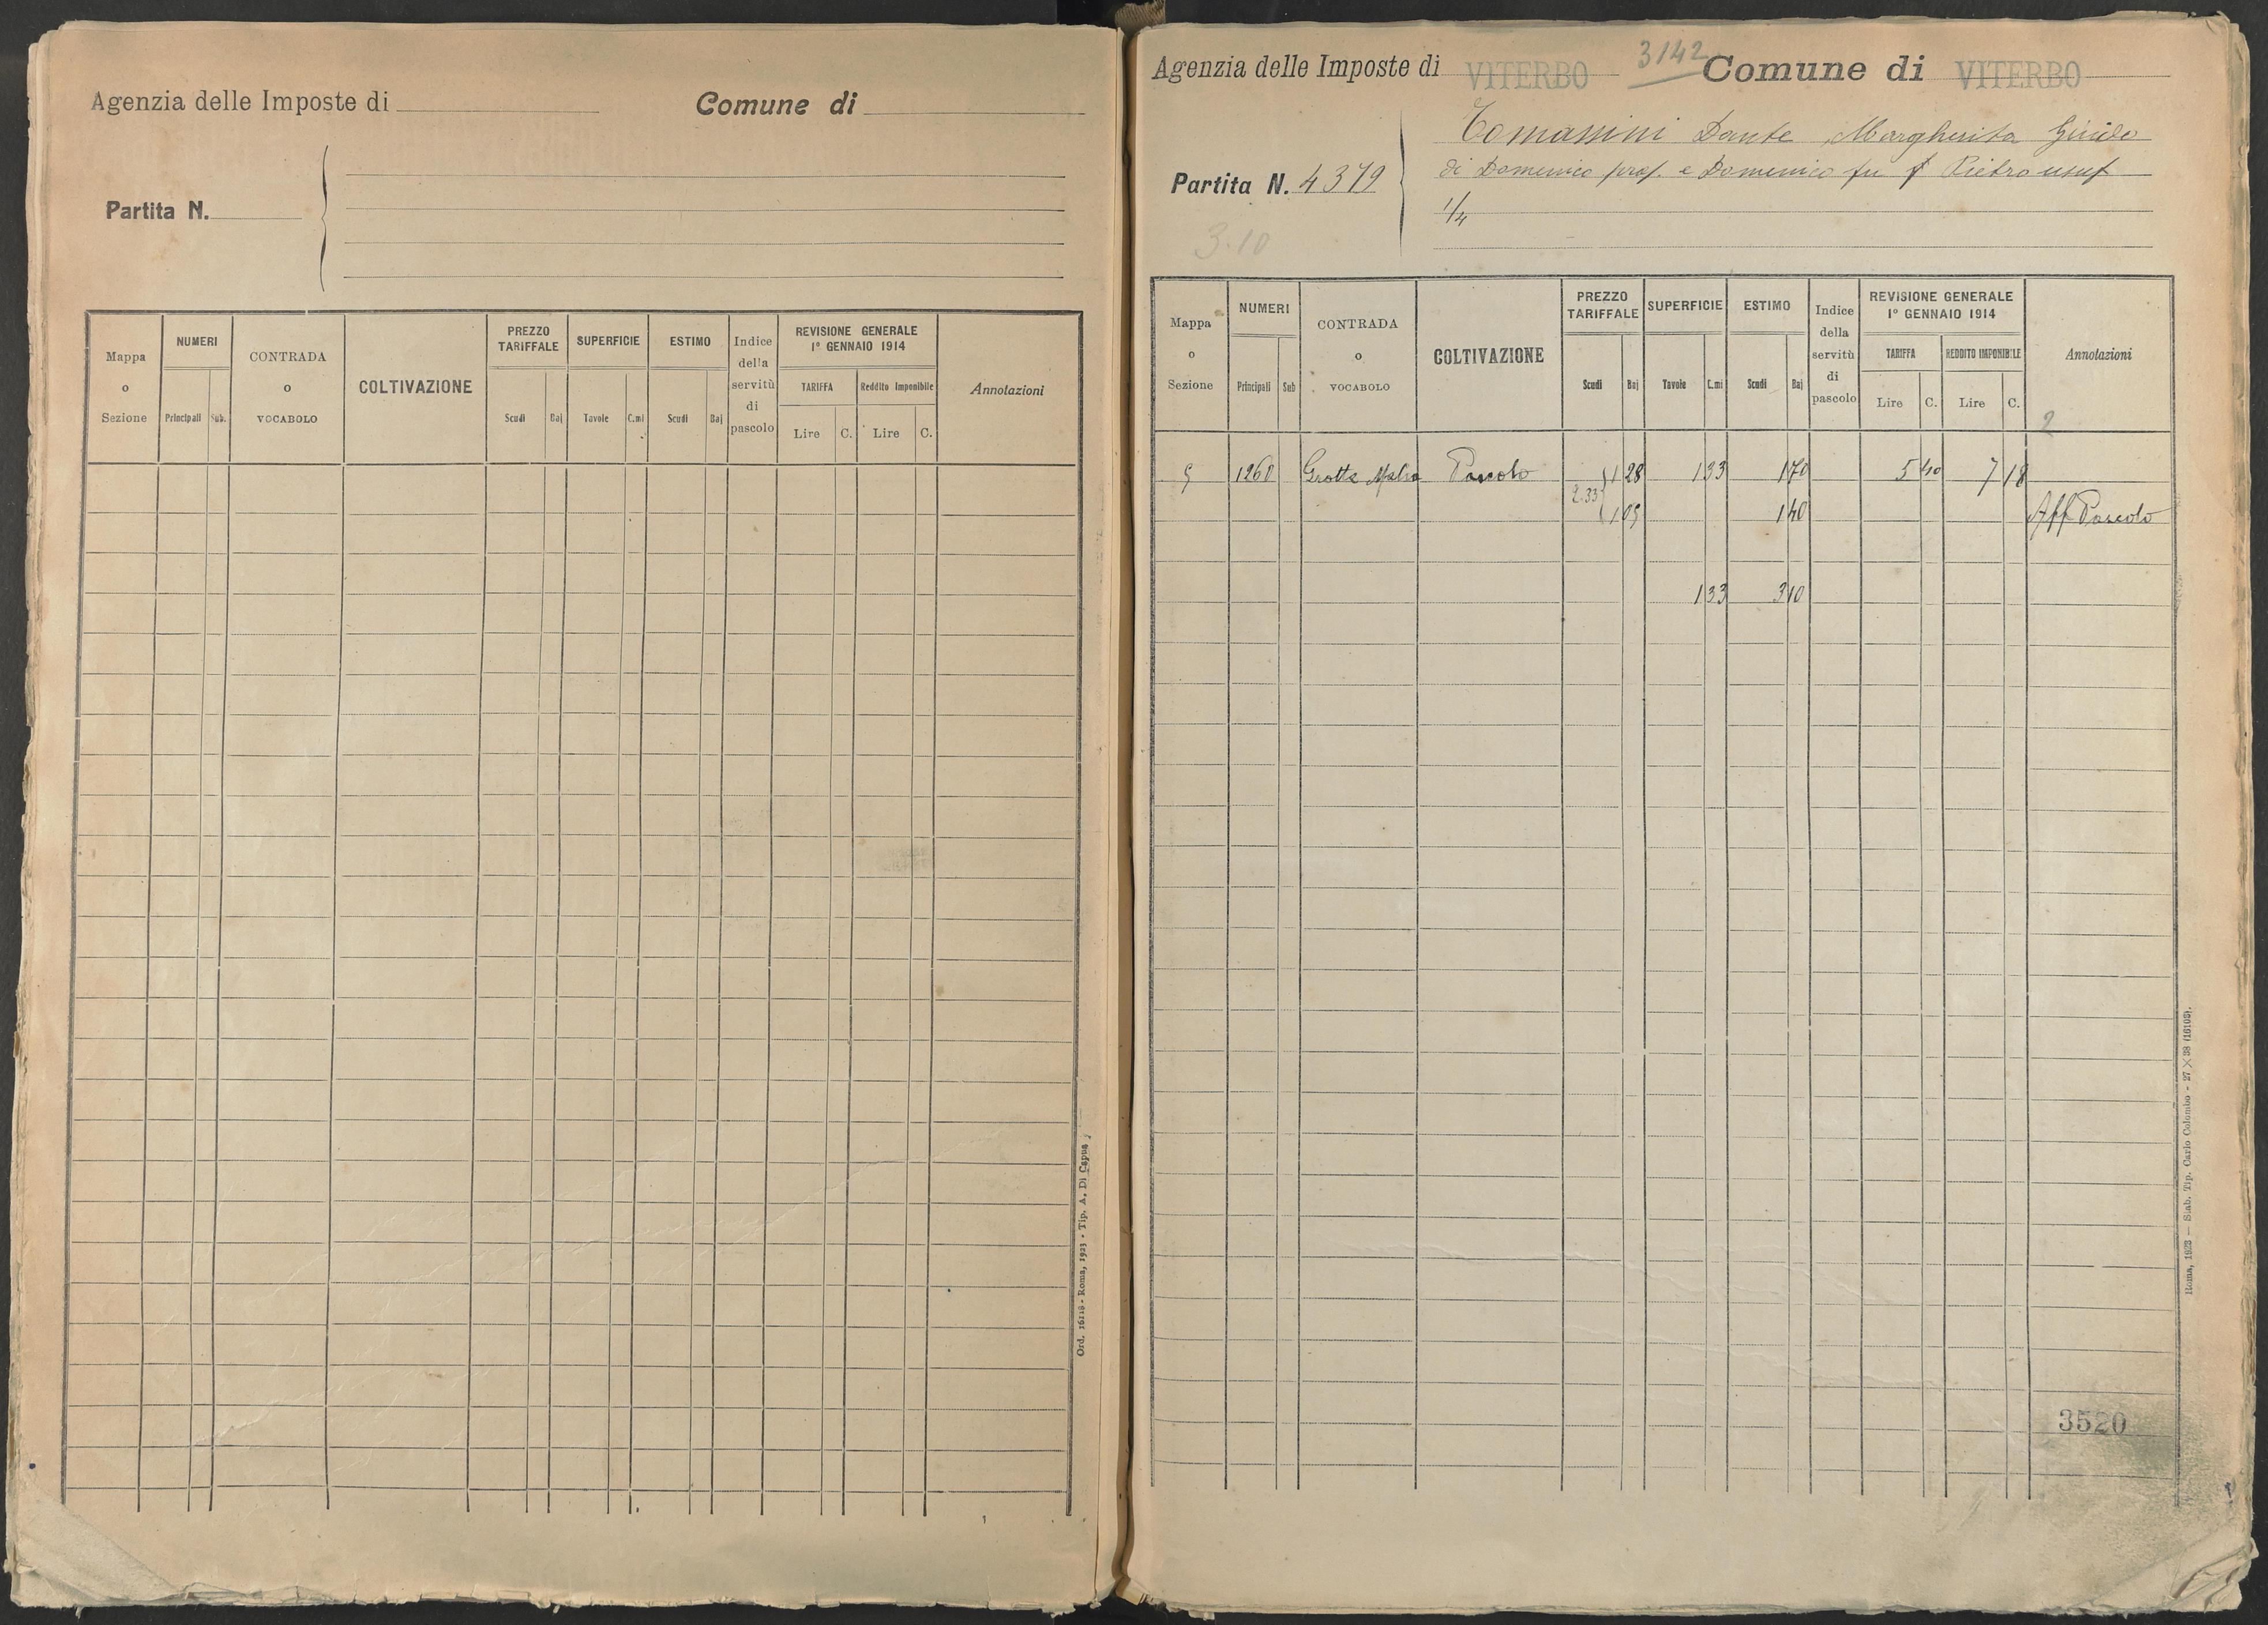 Agenzia delle Imposte di
Comune di
Partita N.
Mappa o Sezione
NUMERI
Principali
Sub.
CONTRADA o VOCABOLO
COLTIVAZIONE
PREZZO TARIFFALE
Scudi
Baj
SUPERFICIE
Tavole
C.mi
ESTIMO
Scudi
Baj
Indice della servitù di pascolo
REVISIONE GENERALE
1° GENNAIO 1914
TARIFFA
Lire
C.
Reddito Imponibile
Lire
C.
Annotazioni
Ord. 16118 - Roma, 1923 - Tip. A. Di Capua
Agenzia delle Imposte di VITERBO 3142 Comune di VITERBO
Tomassini Dante, Margherita Guido
di Domenico prop. e Domenico fu Pietro usuf
1/4
Partita N. 4379
3.10
Mappa o Sezione
NUMERI
Principali
Sub
CONTRADA o VOCABOLO
COLTIVAZIONE
PREZZO TARIFFALE
Scudi
Baj
SUPERFICIE
Tavole
C.mi
ESTIMO
Scudi
Baj
Indice della servitù di pascolo
REVISIONE GENERALE
1° GENNAIO 1914
TARIFFA
Lire
C.
REDDITO IMPONIBILE
Lire
C.
Annotazioni
2
1260 Grotte Pascolo 1 28 1 33 1 70 5 40 7 18
2.33
1 05 1 40 Aff Pascolo
1 33 3 10
3520
Roma, 1923 — Stab. Tip. Carlo Colombo - 27 X 38 (16103).